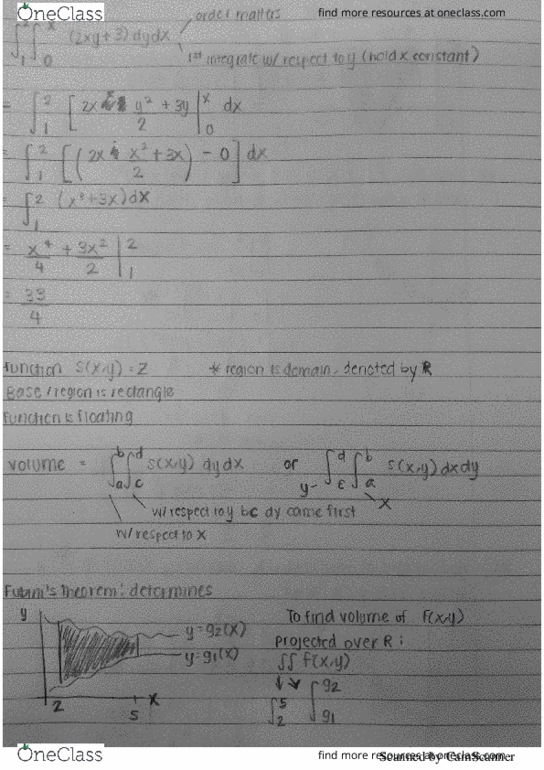 OneClass
find more resources at oneclass.com
order matters
∫₁² ∫₀ˣ (2xy+3) dy dx
1st integrate w/ respect to y (hold x constant)
= ∫₁² [ 2x y²/2 + 3y |₀ˣ dx
= ∫₁² [ ( 2x x²/2 + 3x ) - 0 ] dx
= ∫₁² (x³+3x) dx
= x⁴/4 + 3x²/2 |₁²
= 33/4
function S(x,y) = Z
* region is domain, denoted by R
Base/region is rectangle
function is floating
volume = ∫ₐᵇ ∫꜀ᵈ S(x,y) dy dx or ∫꜀ᵈ ∫ₐᵇ S(x,y) dx dy
y-
x
w/ respect to y bc dy came first
w/ respect to x
Fubini's Theorem: determines
y
y=g2(x)
y=g1(x)
2
5
x
To find volume of f(x,y)
projected over R:
∫∫ f(x,y)
∫₂⁵ ∫g1 g2
OneClass
find more resources at oneclass.com
Scanned by CamScanner